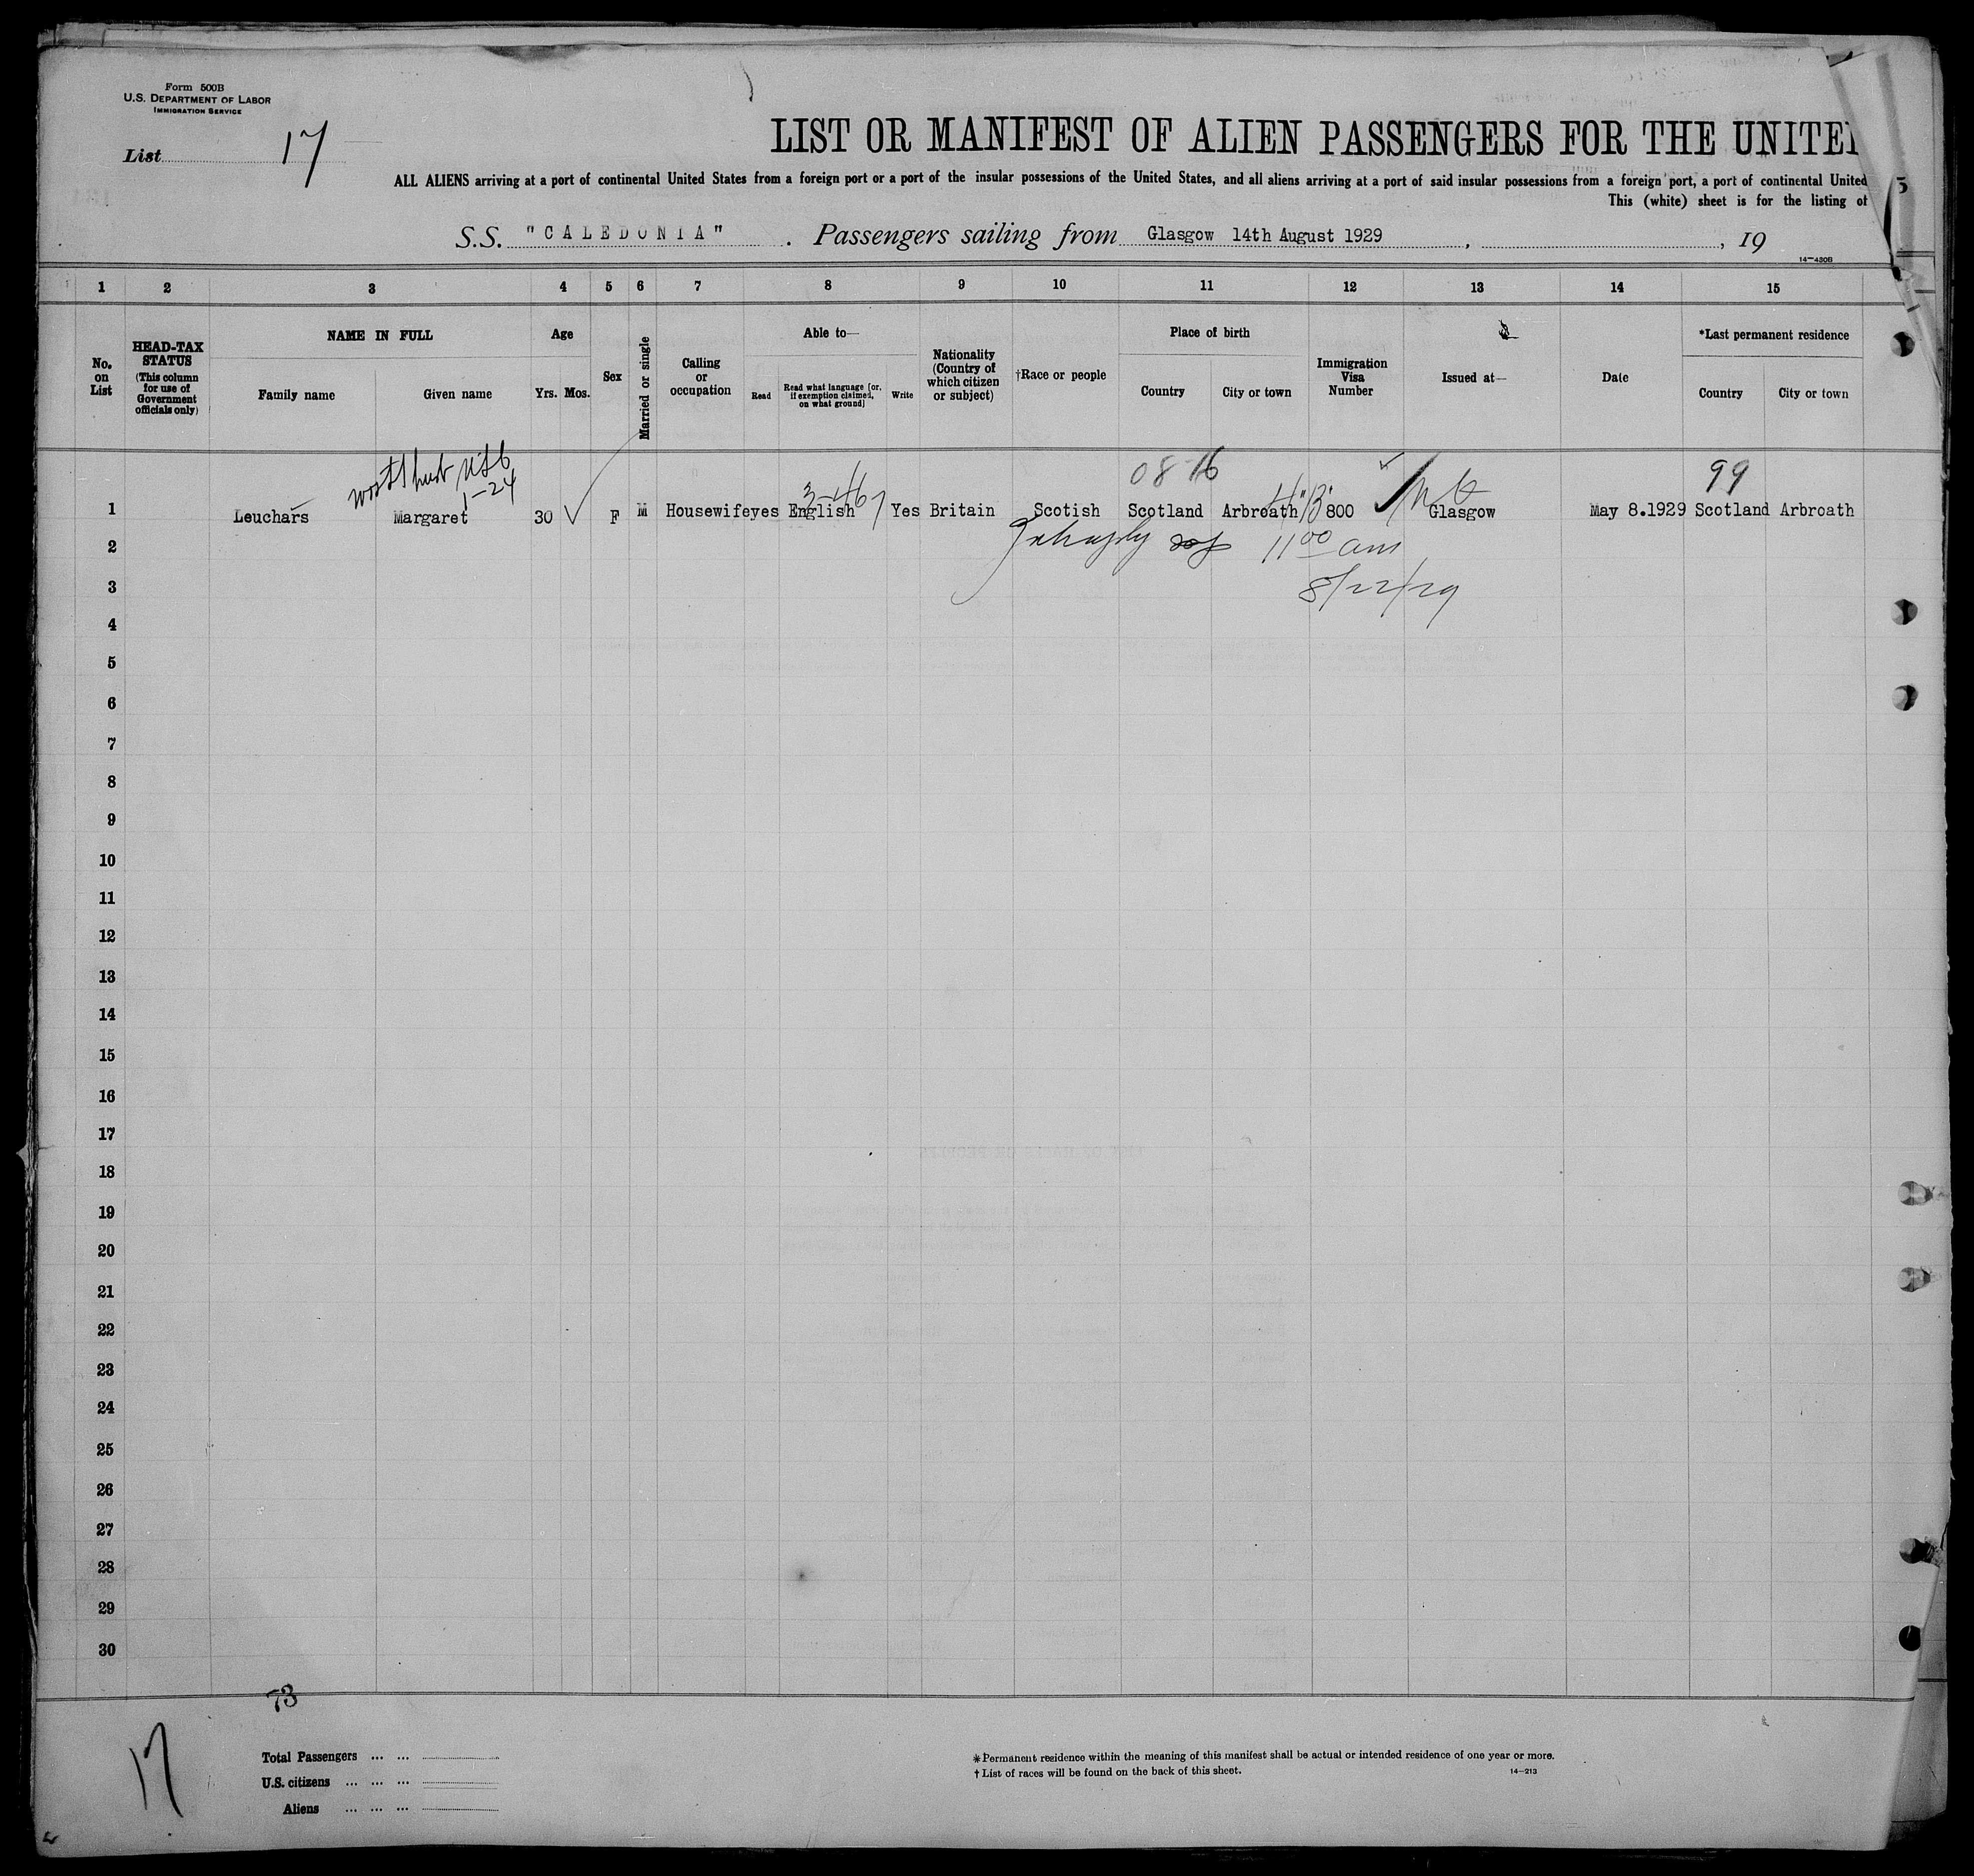 Form 500B
U.S. DEPARTMENT OF LABOR
IMMIGRATION SERVICE
List 17
LIST OR MANIFEST OF ALIEN PASSENGERS FOR THE UNITE
ALL ALIENS arriving at a port of continental United States from a foreign port or a port of the insular possessions of the United States, and all aliens arriving at a port of said insular possessions from a foreign port, a port of continental United
This (white) sheet is for the listing of
S.S. "CALEDONIA" . Passengers sailing from Glasgow 14th August 1929 , , 19
14-430B
1 2 3 4 5 6 7 8 9 10 11 12 13 14 15
No. on List
HEAD-TAX STATUS (This column for use of Government officials only)
NAME IN FULL
Family name Given name
Age
Yrs. Mos.
Sex
Married or single
Calling or occupation
Able to—
Read Read what language [or, if exemption claimed, on what ground] Write
Nationality (Country of which citizen or subject)
†Race or people
Place of birth
Country City or town
Immigration Visa Number
Issued at—
Date
*Last permanent residence
Country City or town
1-24
3-467
08 16
99
1 Leuchars Margaret 30 F M Housewife yes English Yes Britain Scotish Scotland Arbroath 800 Glasgow May 8.1929 Scotland Arbroath
2
11 00 am
3
8/22/29
4
5
6
7
8
9
10
11
12
13
14
15
16
17
18
19
20
21
22
23
24
25
26
27
28
29
30
73
17
Total Passengers ... ...
U.S. citizens ... ... ...
Aliens ... ... ...
*Permanent residence within the meaning of this manifest shall be actual or intended residence of one year or more.
† List of races will be found on the back of this sheet.
14-213